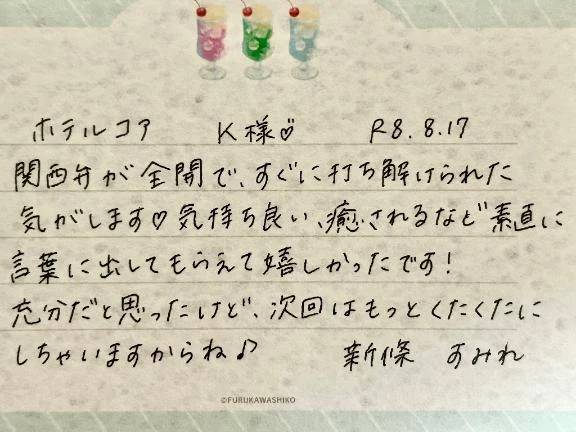 ホテルコア K様♡ R8.8.17
関西弁が全開で、すぐに打ち解けられた
気がします♡気持ち良い、癒されるなど素直に
言葉に出してもらえて嬉しかったです！
充分だと思ったけど、次回はもっとくたくたに
しちゃいますからね♪ 新條 すみれ
©FURUKAWASHIKO